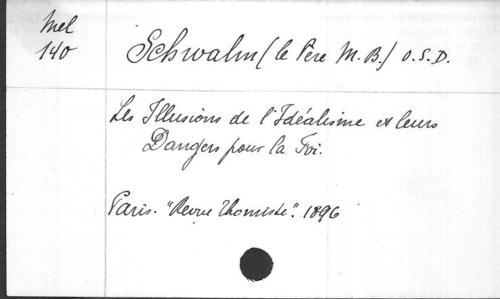 Mel
140
Schwalm (le Père M. B.) O. S. D.
Les Illusions de l'Idéalisme et leurs
Dangers pour la Foi.
Paris. "Revue Thomiste". 1896